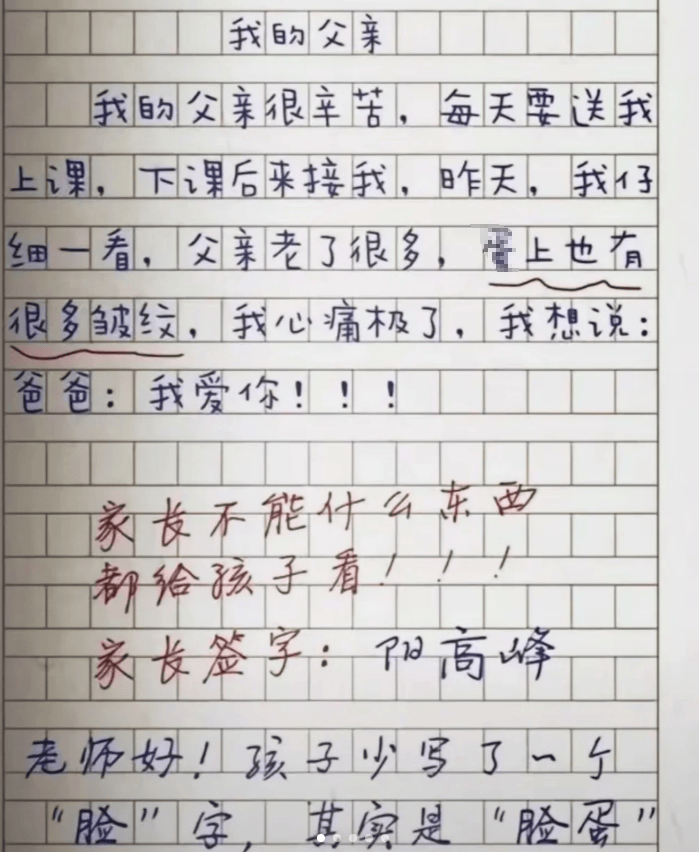 我的父亲
我的父亲很辛苦，每天要送我
上课，下课后来接我，昨天，我仔
细一看，父亲老了很多，上也有
很多皱纹，我心痛极了，我想说：
爸爸：我爱你！！！
家长不能什么东西
都给孩子看！！！
家长签字：阳高峰
老师好！孩子少写了一个
“脸”字，其实是“脸蛋”